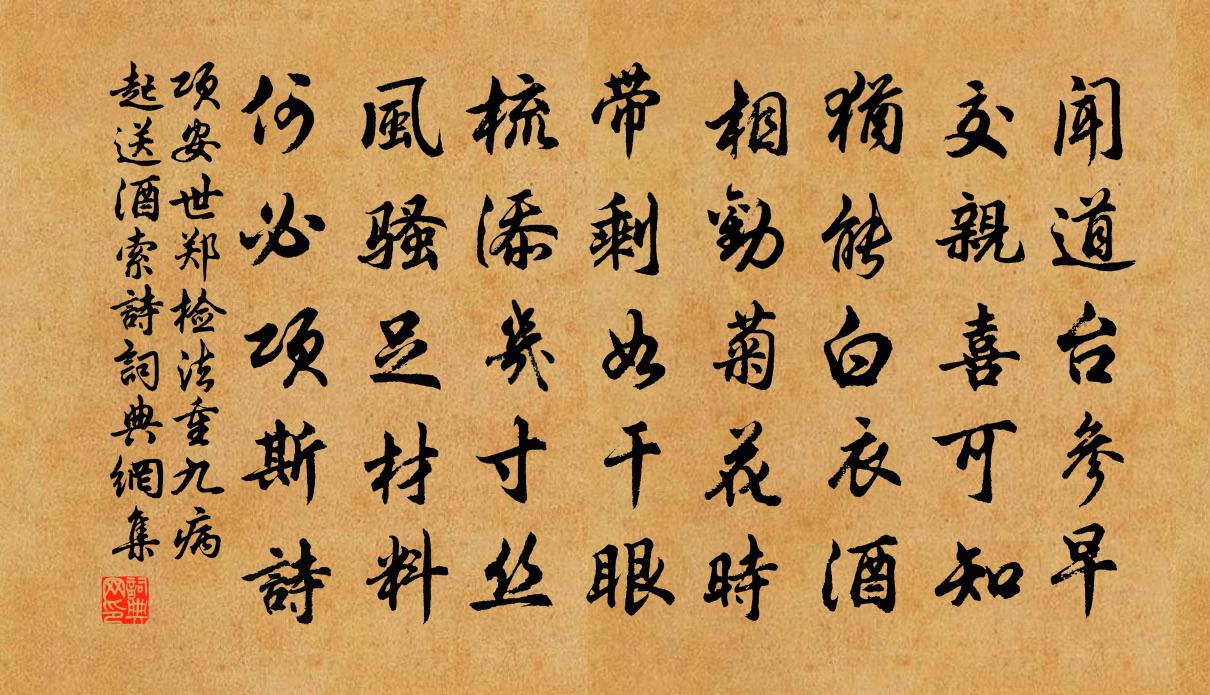 闻道台参早
交親喜可知
猶能白衣酒
相勸菊花時
带剩如干眼
梳添幾寸丝
風骚足材料
何必项斯詩
项安世郑检法重九病
起送酒索詩詞典網集
詞典网印